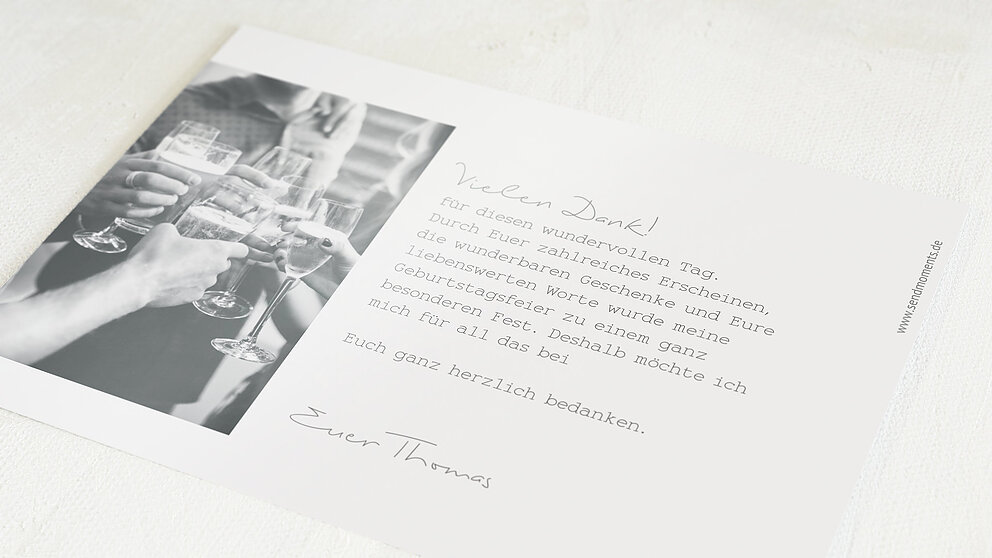 Vielen Dank!
für diesen wundervollen Tag.
Durch Euer zahlreiches Erscheinen,
die wunderbaren Geschenke und Eure
liebenswerten Worte wurde meine
Geburtstagsfeier zu einem ganz
besonderen Fest. Deshalb möchte ich
mich für all das bei
Euch ganz herzlich bedanken.
Euer Thomas
www.sendmoments.de